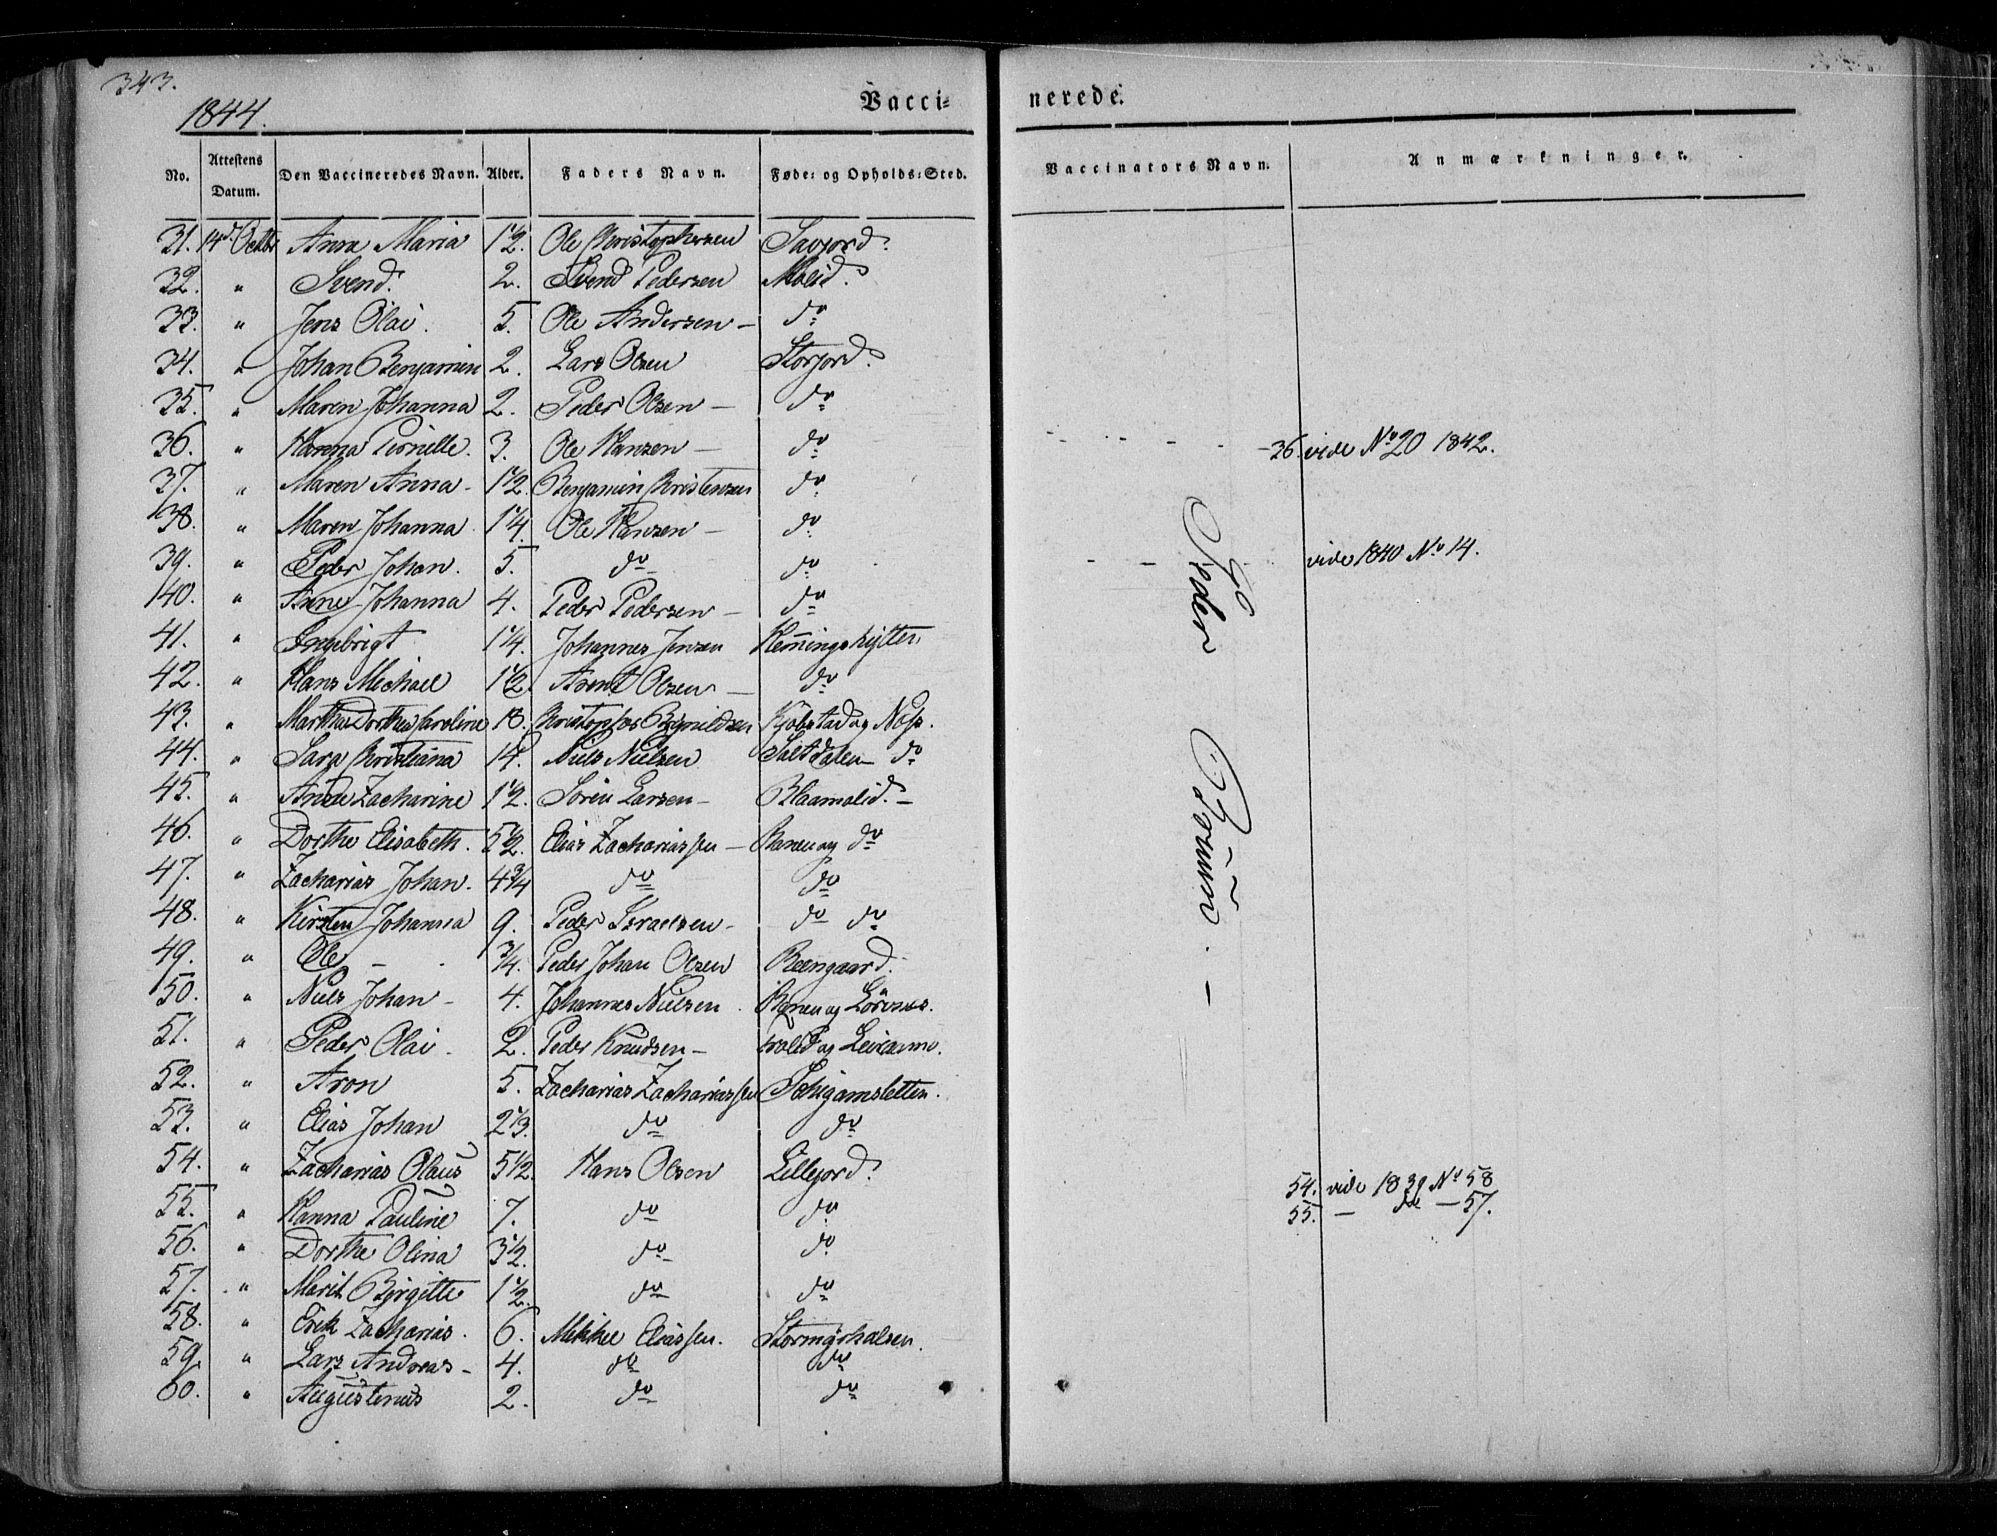 343.
1844.
Vacci-
nerede.
No. Attestens Datum. Den Vaccineredes Navn. Alder. Faders Navn. Føde- og Opholds-Sted. Vaccinators Navn. Anmærkninger.
31. 14d. Octbr Anna Maria 1 1/2. Ole Christophersen
32. " Svend. 2. Svend Pedersen Molid.
33. " Jens Olai. 5. Ole Andersen - do
34. " Johan Benjamin 2. Lars Olsen Storjord.
35. " Maren Johanna 2. Peder Olsen - do
36. " Pernille. 3. Ole Hansen - do - 36. vide No 20 1842.
37. " Maren Anna - 1 1/2. Benjamin Christensen do
38. " Maren Johanna 1 1/4. Ole Hansen - do
39. " Peder Johan. 5. do do vide 1840 No 14.
40. " Anne Johanna 4. Peder Pedersen - do
41. " Ingebrigt 1 1/4. Johannes Jensen
42. " Hans Michael 1 1/2. Arent Olsen - do
43. " Martha Dorthea Caroline 18. Christopher
44. " Sara Christiana 14. Niels Nielsen Saltdalen - do
45. " Zacharine 1 1/2. Sören Larsen - Blaamolid. -
46. " Dorthe Elisabeth. 5 1/2. Elias Zachariassen - Ranen og do
47. " Zacharias Johan. 4 3/4 do do
48. " Kirsten Johanna 9. Peder Israelsen - do do
49. " Ole - 3/4. Peder Johan Olsen Reengaard.
50. " Niels Johan - 4. Johannes Nielsen. Ranen og
51. " Peder Olai. 2. Peder Knudsen - og
52. " Aron 5. Zacharias Zachariassen
53. " Elias Johan 2 1/3. do do
54. " Zacharias Olaus 5 1/2. Hans Olsen Lillejord. 54. vide 1839 No 58
55. " Hanna Pauline 7. do do 55. - do - 57.
56. " Dorthe Olina 3 1/2. do do
57. " Marit Birgitte 1 1/2. do do
58. " Erik Zacharias. 6. Mikkel Eliassen.
59. " Lars Andreas - 4. do do
60. " Augustinus 2. do do
Peder